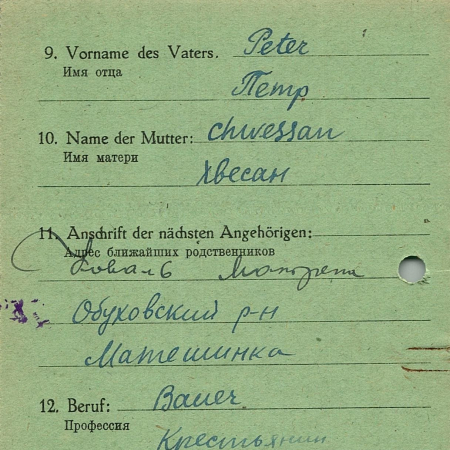 9. Vorname des Vaters. Peter
Имя отца
Петр
10. Name der Mutter: Chwessan
Имя матери
Хвесан
11. Anschrift der nächsten Angehörigen:
Адрес ближайших родственников
Коваль Мотрена
Обуховский р-н
Матешинка
12. Beruf: Bauer
Профессия
Крестьянин